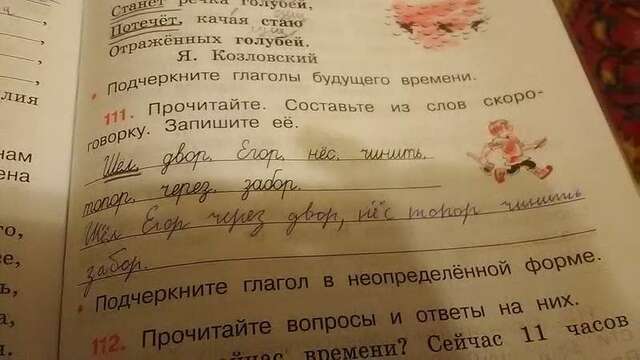 Станет речка голубей,
Потечёт, качая стаю
Отражённых голубей.
Я. Козловский
• Подчеркните глаголы будущего времени.
111. Прочитайте. Составьте из слов скоро-
говорку. Запишите её.
Шёл, двор, Егор, нёс, чинить,
топор, через, забор.
Шёл Егор через двор, нёс топор чинить
забор.
• Подчеркните глагол в неопределённой форме.
112. Прочитайте вопросы и ответы на них.
времени? Сейчас 11 часов
лия
нам
ена
го,
ее,
ь,
а,